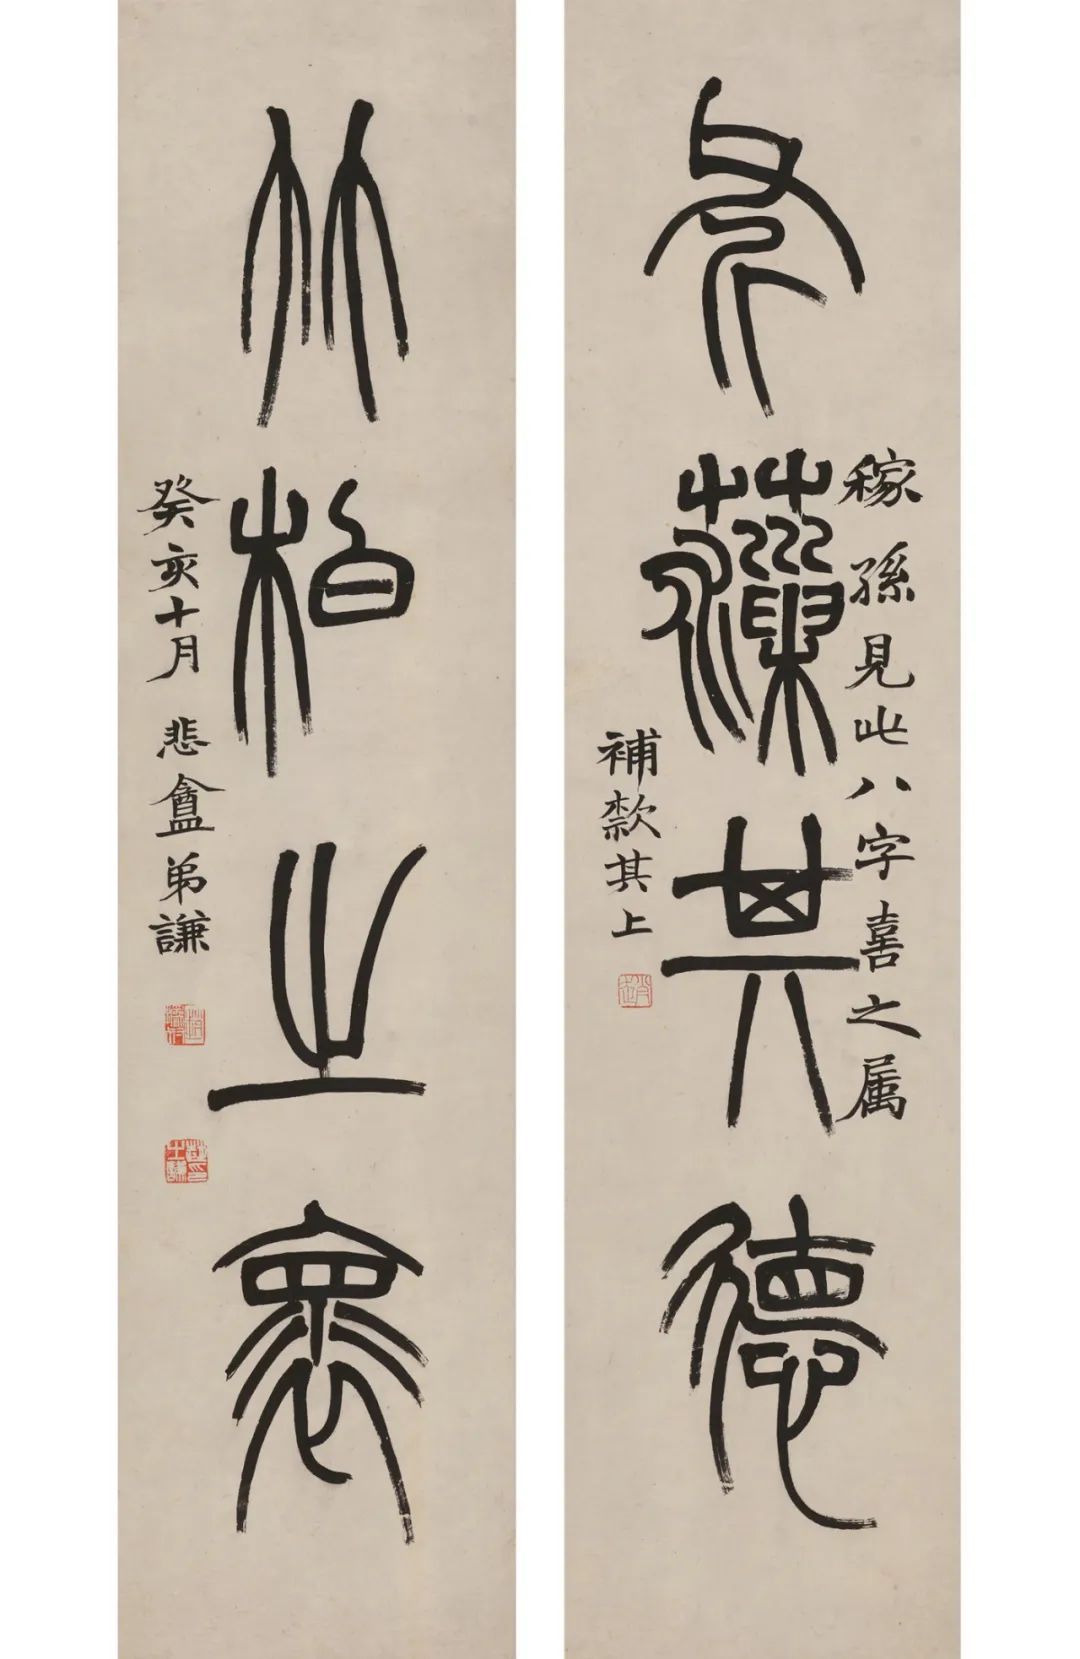 其德
稼孫見此八字喜之属
補款其上
竹柏之褱
癸亥十月 悲盦弟謙